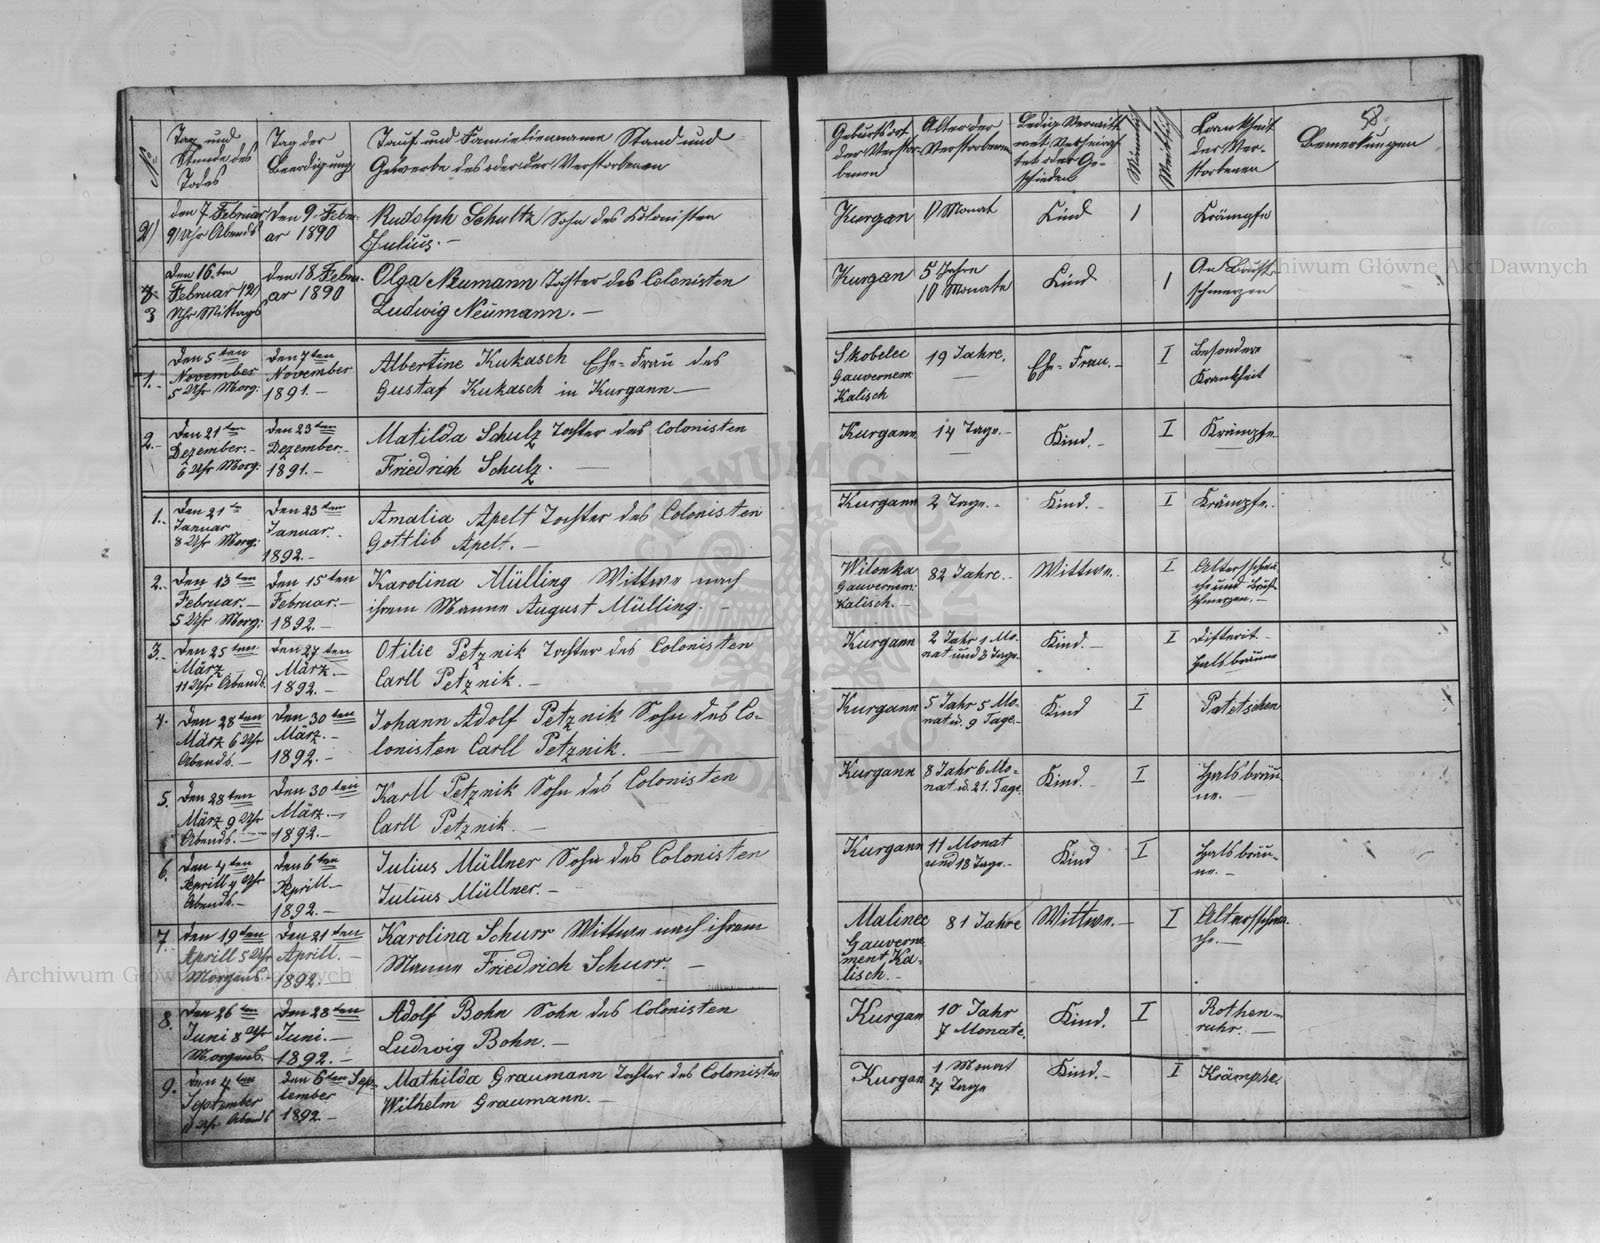 58
No
Tag und
Stunde des
Todes
Tag der
Beerdigung
Tauf und Familienname Stand und
Gewerbe des oder der Verstorbenen
Geburtsort
der Verstor-
benen
Alter der
Verstorbenen
Ledig Verwitt
wet Verheirat
tet oder Ge-
schieden
Männlich
Weiblich
Krankheit
der Ver-
storbenen
Bemerkungen
2)
den 7 Februar
9 Uhr Abends
den 9 Febru-
ar 1890
Rudolph Schultz Sohn des Colonisten
Julius.-
Kurgan
Monat
Kind
1
Krämpfe
3
Den 16 ten
Februar 12
Uhr Mittags
den 18 Febru-
ar 1890
Olga Neumann Tochter des Colonisten
Ludwig Neumann.-
Kurgan
5 Jahre
10 Monate
Kind
1
An Brust
schmerzen
1.
Den 5 ten
November
5 Uhr Morg:
Den 7 ten
November
1891.-
Albertine Kukasch Ehe-Frau des
Gustaf Kukasch in Kurgann-
Skobelec
Gauvernem
Kalisch
19 Jahre.
Ehe-Frau.-
I
Besondere
Krankheit
2.
Den 21 ten
Dezember.-
6 Uhr Morg:
Den 23 ten
Dezember.-
1891.-
Matilda Schulz Tochter des Colonisten
Friedrich Schulz.-
Kurgann
14 Tage.-
Kind.-
I
Krämpfe
1.
Den 21 te
Januar
8 Uhr Morg:
Den 23 ten
Januar.-
1892.-
Amalia Apelt Tochter des Colonisten
Gottlib Apelt.-
Kurgann
2 Tage.-
Kind.-
I
Krämpfe.
2.
Den 13 ten
Februar.-
5 Uhr Morg:
Den 15 ten
Februar.-
1892.-
Karolina Mülling Wittwe nach
ihrem Manne August Mülling.-
Wilonka
Gauvernem:
Kalisch.-
82 Jahre.-
Wittwe.
I
Altersschwä
che und Brust
schmerzen.-
3.
Den 25 ten
März
11 Uhr Abends.
Den 27 ten
März.-
1892.-
Otilie Petznik Tochter des Colonisten
Carll Petznik.-
Kurgann
2 Jahr 1 Mo-
nat und 3 Tage.
Kind.-
I
Difterit-
Halsbräune
4.
Den 28 ten
März 6 Uhr
Abends.-
Den 30 ten
März.-
1892.-
Johann Adolf Petznik Sohn des Co-
lonisten Carll Petznik.-
Kurgann
5 Jahr 5 Mo-
nat u. 9 Tage.-
Kind
I
Patetschen
5.
Den 28 ten
März 9 Uhr
Abends.-
Den 30 ten
März.-
1892.-
Karll Petznik Sohn des Colonisten
Carll Petznik.-
Kurgann
8 Jahr 6 Mo-
nat u. 21. Tage.
Kind.
I
Halsbräu
ne.-
6.
Den 4 ten
Aprill 4 Uhr
Abends.-
Den 6 ten
Aprill.-
1892.-
Julius Müllner Sohn des Colonisten
Julius Müllner.-
Kurgann
11 Monat
und 18 Tage.-
Kind
I
Halsbräu-
ne.-
7.
Den 19 ten
Aprill 5 Uhr
Morgens.-
Den 21 ten
Aprill.-
1892.
Karolina Schurr Wittwe nach ihrem
Manne Friedrich Schurr.-
Malinec
Gauverne
ment Ka-
lisch.-
81 Jahre
Wittwe.-
I
Altersschwä-
che.-
8.
Den 26 ten
Juni 8 Uhr
Morgens.
Den 28 ten
Juni.-
1892.-
Adolf Bohn Sohn des Colonisten
Ludwig Bohn.-
Kurgan
10 Jahr
7 Monate.
Kind.
I
Rothen-
ruhr.-
9.
Den 4 ten
September
Uhr Abends
Den 6 ten Sep-
tember
1892.-
Mathilda Graumann Tochter des Colonisten
Wilhelm Graumann.-
Kurgan
1 Monat
27 Tage
Kind.-
I
Krämphe.
Archiwum Główne Akt Dawnych
Archiwum Główne Akt Dawnych
ARCHIWUM GŁÓWNE AKT DAWNYCH